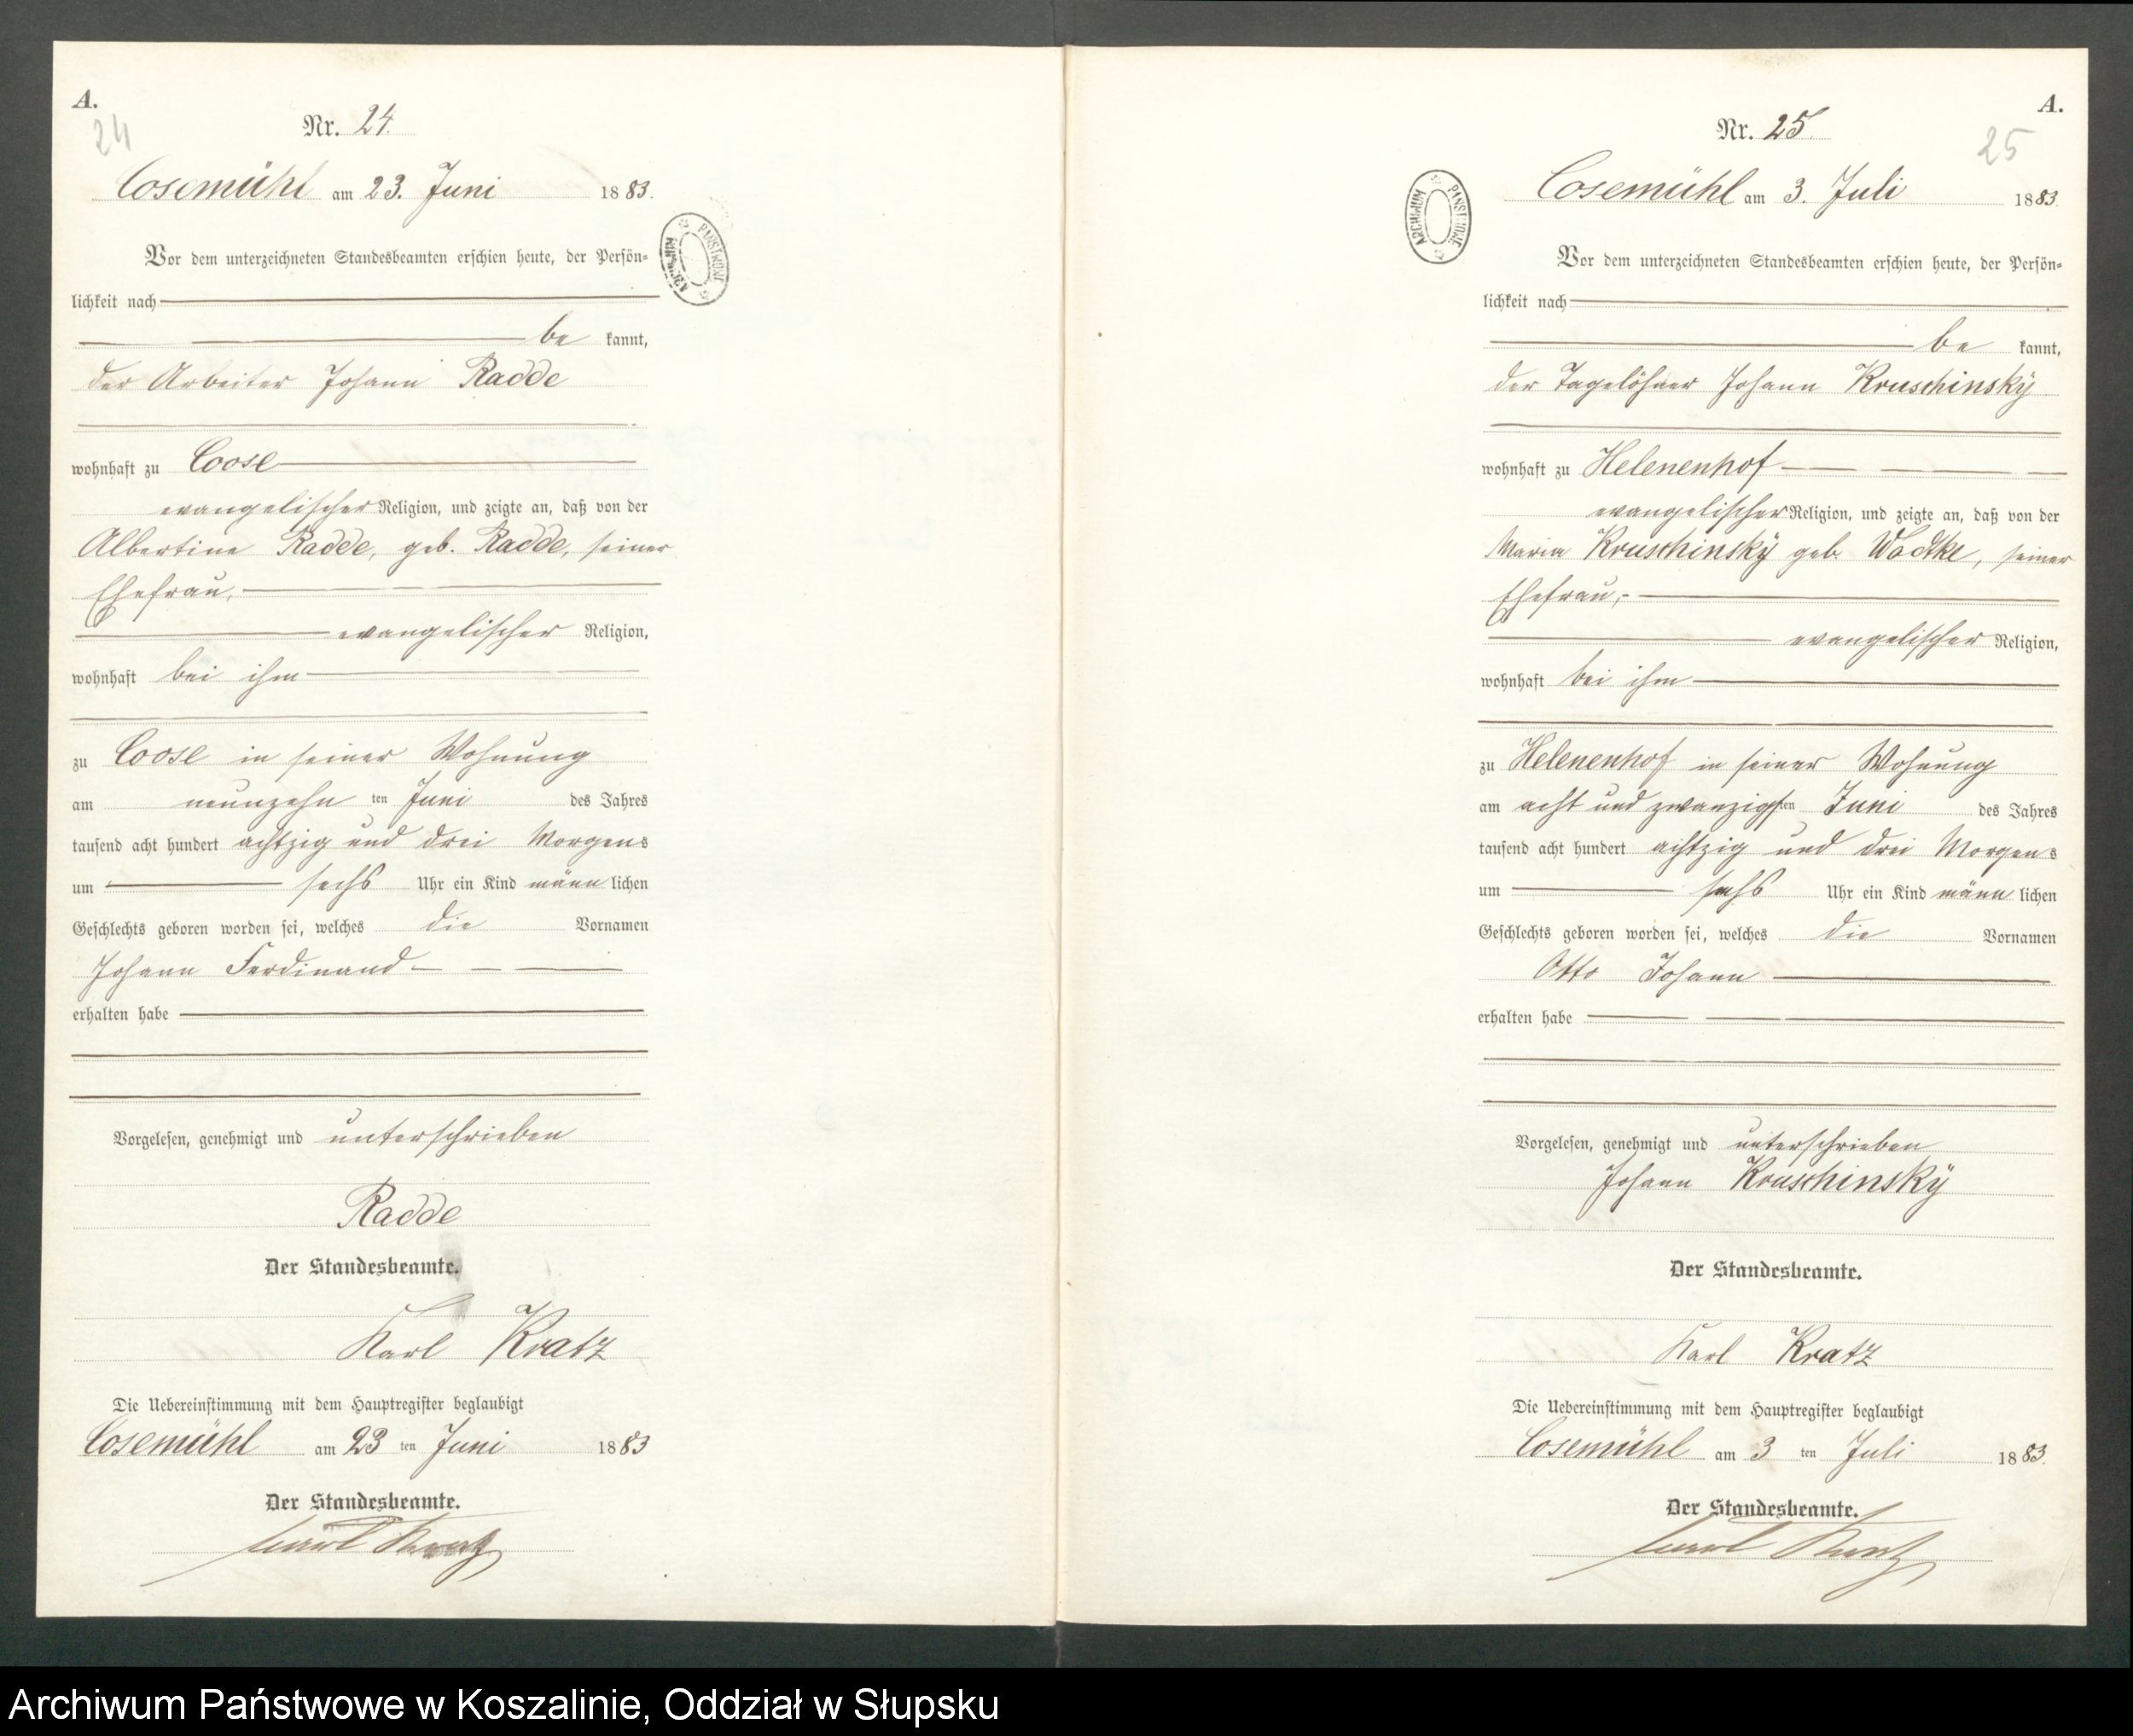 A.
24
Nr. 24.
Cosemühl am 23. Juni 1883.
Vor dem unterzeichneten Standesbeamten erschien heute, der Persön-
lichkeit nach
be kannt,
der Arbeiter Johann Radde
wohnhaft zu Coose
evangelischer Religion, und zeigte an, daß von der
Albertine Radde, geb. Radde, seiner
Ehefrau,
evangelischer Religion,
wohnhaft bei ihm
zu Coose in seiner Wohnung
am neunzehn ten Juni des Jahres
tausend acht hundert achtzig und drei Morgens
um sechs Uhr ein Kind männlichen
Geschlechts geboren worden sei, welches die Vornamen
Johann Ferdinand
erhalten habe
Vorgelesen, genehmigt und unterschrieben
Radde
Der Standesbeamte.
Karl Kratz
Die Uebereinstimmung mit dem Hauptregister beglaubigt
Cosemühl am 23 ten Juni 1883
Der Standesbeamte.
Carl Kratz
ARCHIWUM PAŃSTWOWE
A.
25
Nr. 25.
Cosemühl am 3. Juli 1883.
ARCHIWUM PAŃSTWOWE
Vor dem unterzeichneten Standesbeamten erschien heute, der Persön-
lichkeit nach
be kannt,
der Tagelöhner Johann Kruschinsky
wohnhaft zu Helenenhof
evangelischer Religion, und zeigte an, daß von der
Maria Kruschinsky geb. Wodtke, seiner
Ehefrau,
evangelischer Religion,
wohnhaft bei ihm
zu Helenenhof in seiner Wohnung
am acht und zwanzigsten Juni des Jahres
tausend acht hundert achtzig und drei Morgens
um sechs Uhr ein Kind männlichen
Geschlechts geboren worden sei, welches die Vornamen
Otto Johann
erhalten habe
Vorgelesen, genehmigt und unterschrieben
Johann Kruschinsky
Der Standesbeamte.
Karl Kratz
Die Uebereinstimmung mit dem Hauptregister beglaubigt
Cosemühl am 3 ten Juli 1883.
Der Standesbeamte.
Carl Kratz
Archiwum Państwowe w Koszalinie, Oddział w Słupsku